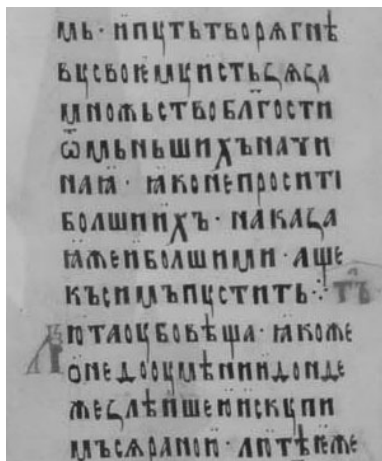 мь · и пꙋть творѧ гнѣ
вꙋ своѥмꙋ и стьѕѧ ѕа
множьство бл҃гости
ѿ мьньшихъ начи
наꙗ · ꙗко не проситі
болшиихъ · наказа
ꙗже и болшими · аще
къ симъ пꙋстить ⁘ т҃ъ
ютаоꙋбо вѣща · ꙗкоже
о недооꙋмѣнии донде
же слѣпше ю и скꙋпи
мъ сѧ ра но и · лютѣ ѥже